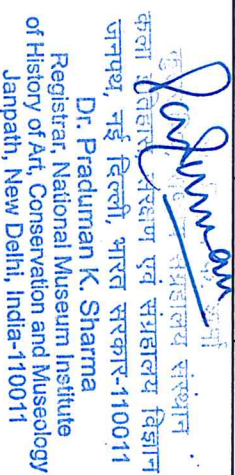 संग्रहालय संस्थान
कला इतिहास, संरक्षण एवं संग्रहालय विज्ञान
जनपथ, नई दिल्ली, भारत सरकार-110011
Dr. Praduman K. Sharma
Registrar, National Museum Institute
of History of Art, Conservation and Museology
Janpath, New Delhi, India-110011